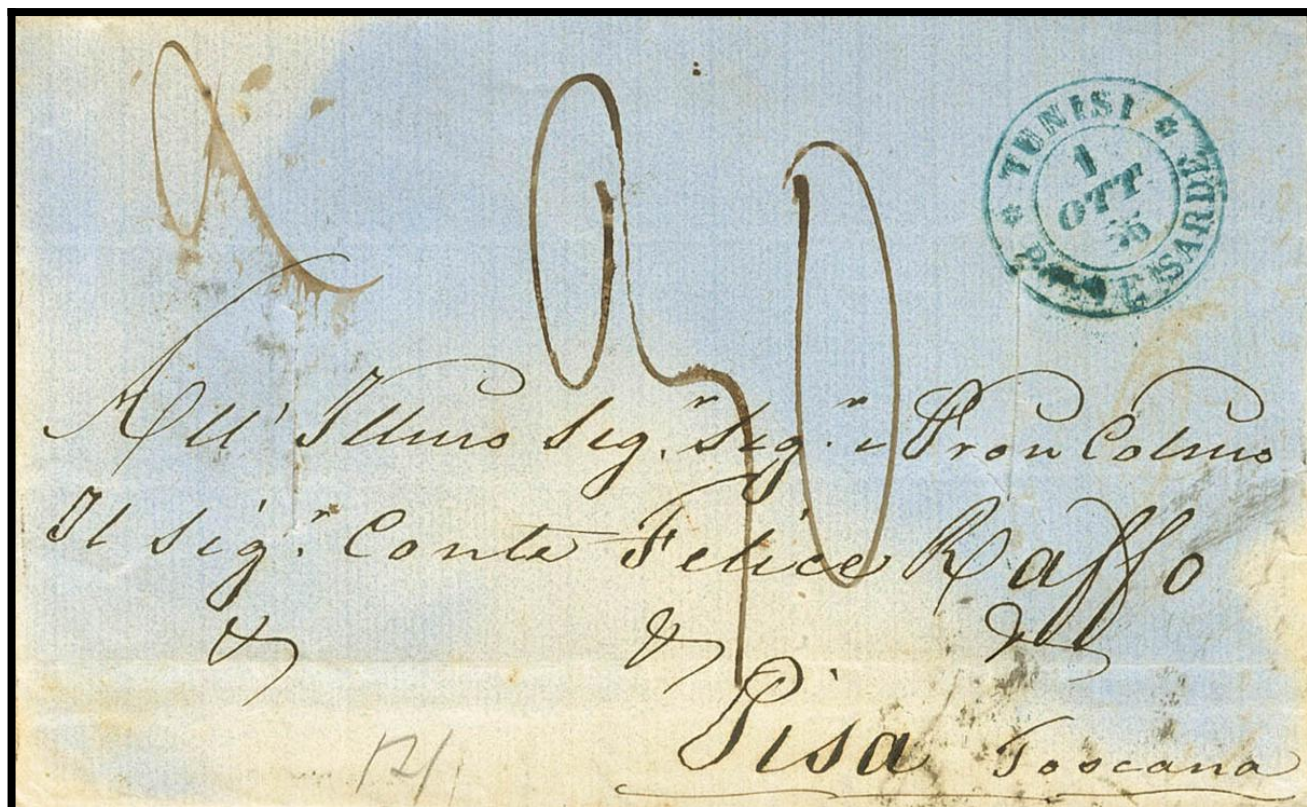 TUNISI
1
OTT
55
POSTE SARDE
All' Illmo Sig.r Sig.r e Pron Colmo
Il Sig.r Conte Felice Raffo
& & &
Pisa Toscana
12/